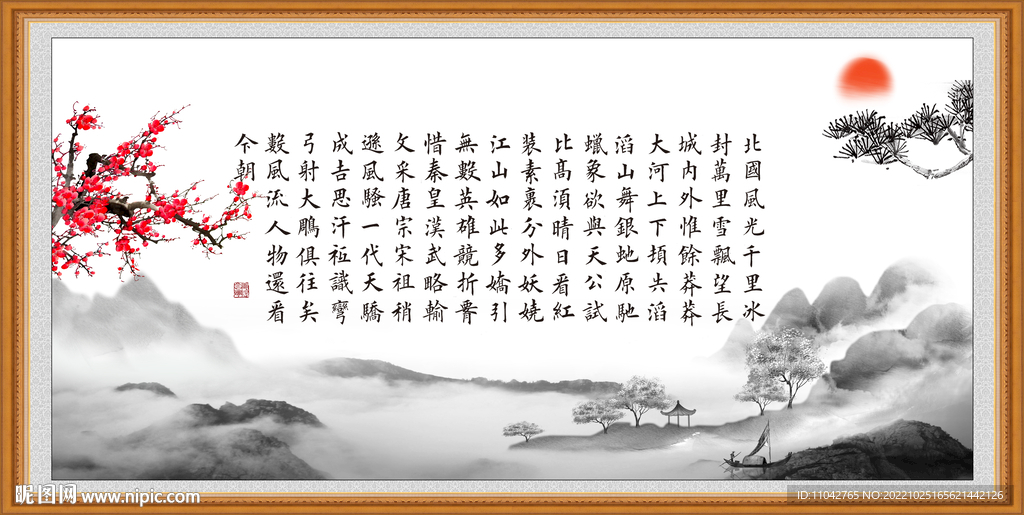 北國風光千里冰
封萬里雪飄望長
城內外惟餘莽莽
大河上下頓失滔
滔山舞銀虵原馳
蠟象欲與天公試
比髙須晴日看紅
裝素裹分外妖嬈
江山如此多嬌引
無數英雄競折腰
惜秦皇漢武略輸
文采唐宗宋祖稍
遜風騷一代天驕
成吉思汗祗識彎
弓射大鵰俱往矣
數風流人物還看
今朝
昵图网 www.nipic.com
ID:11042765 NO:20221025165621442126